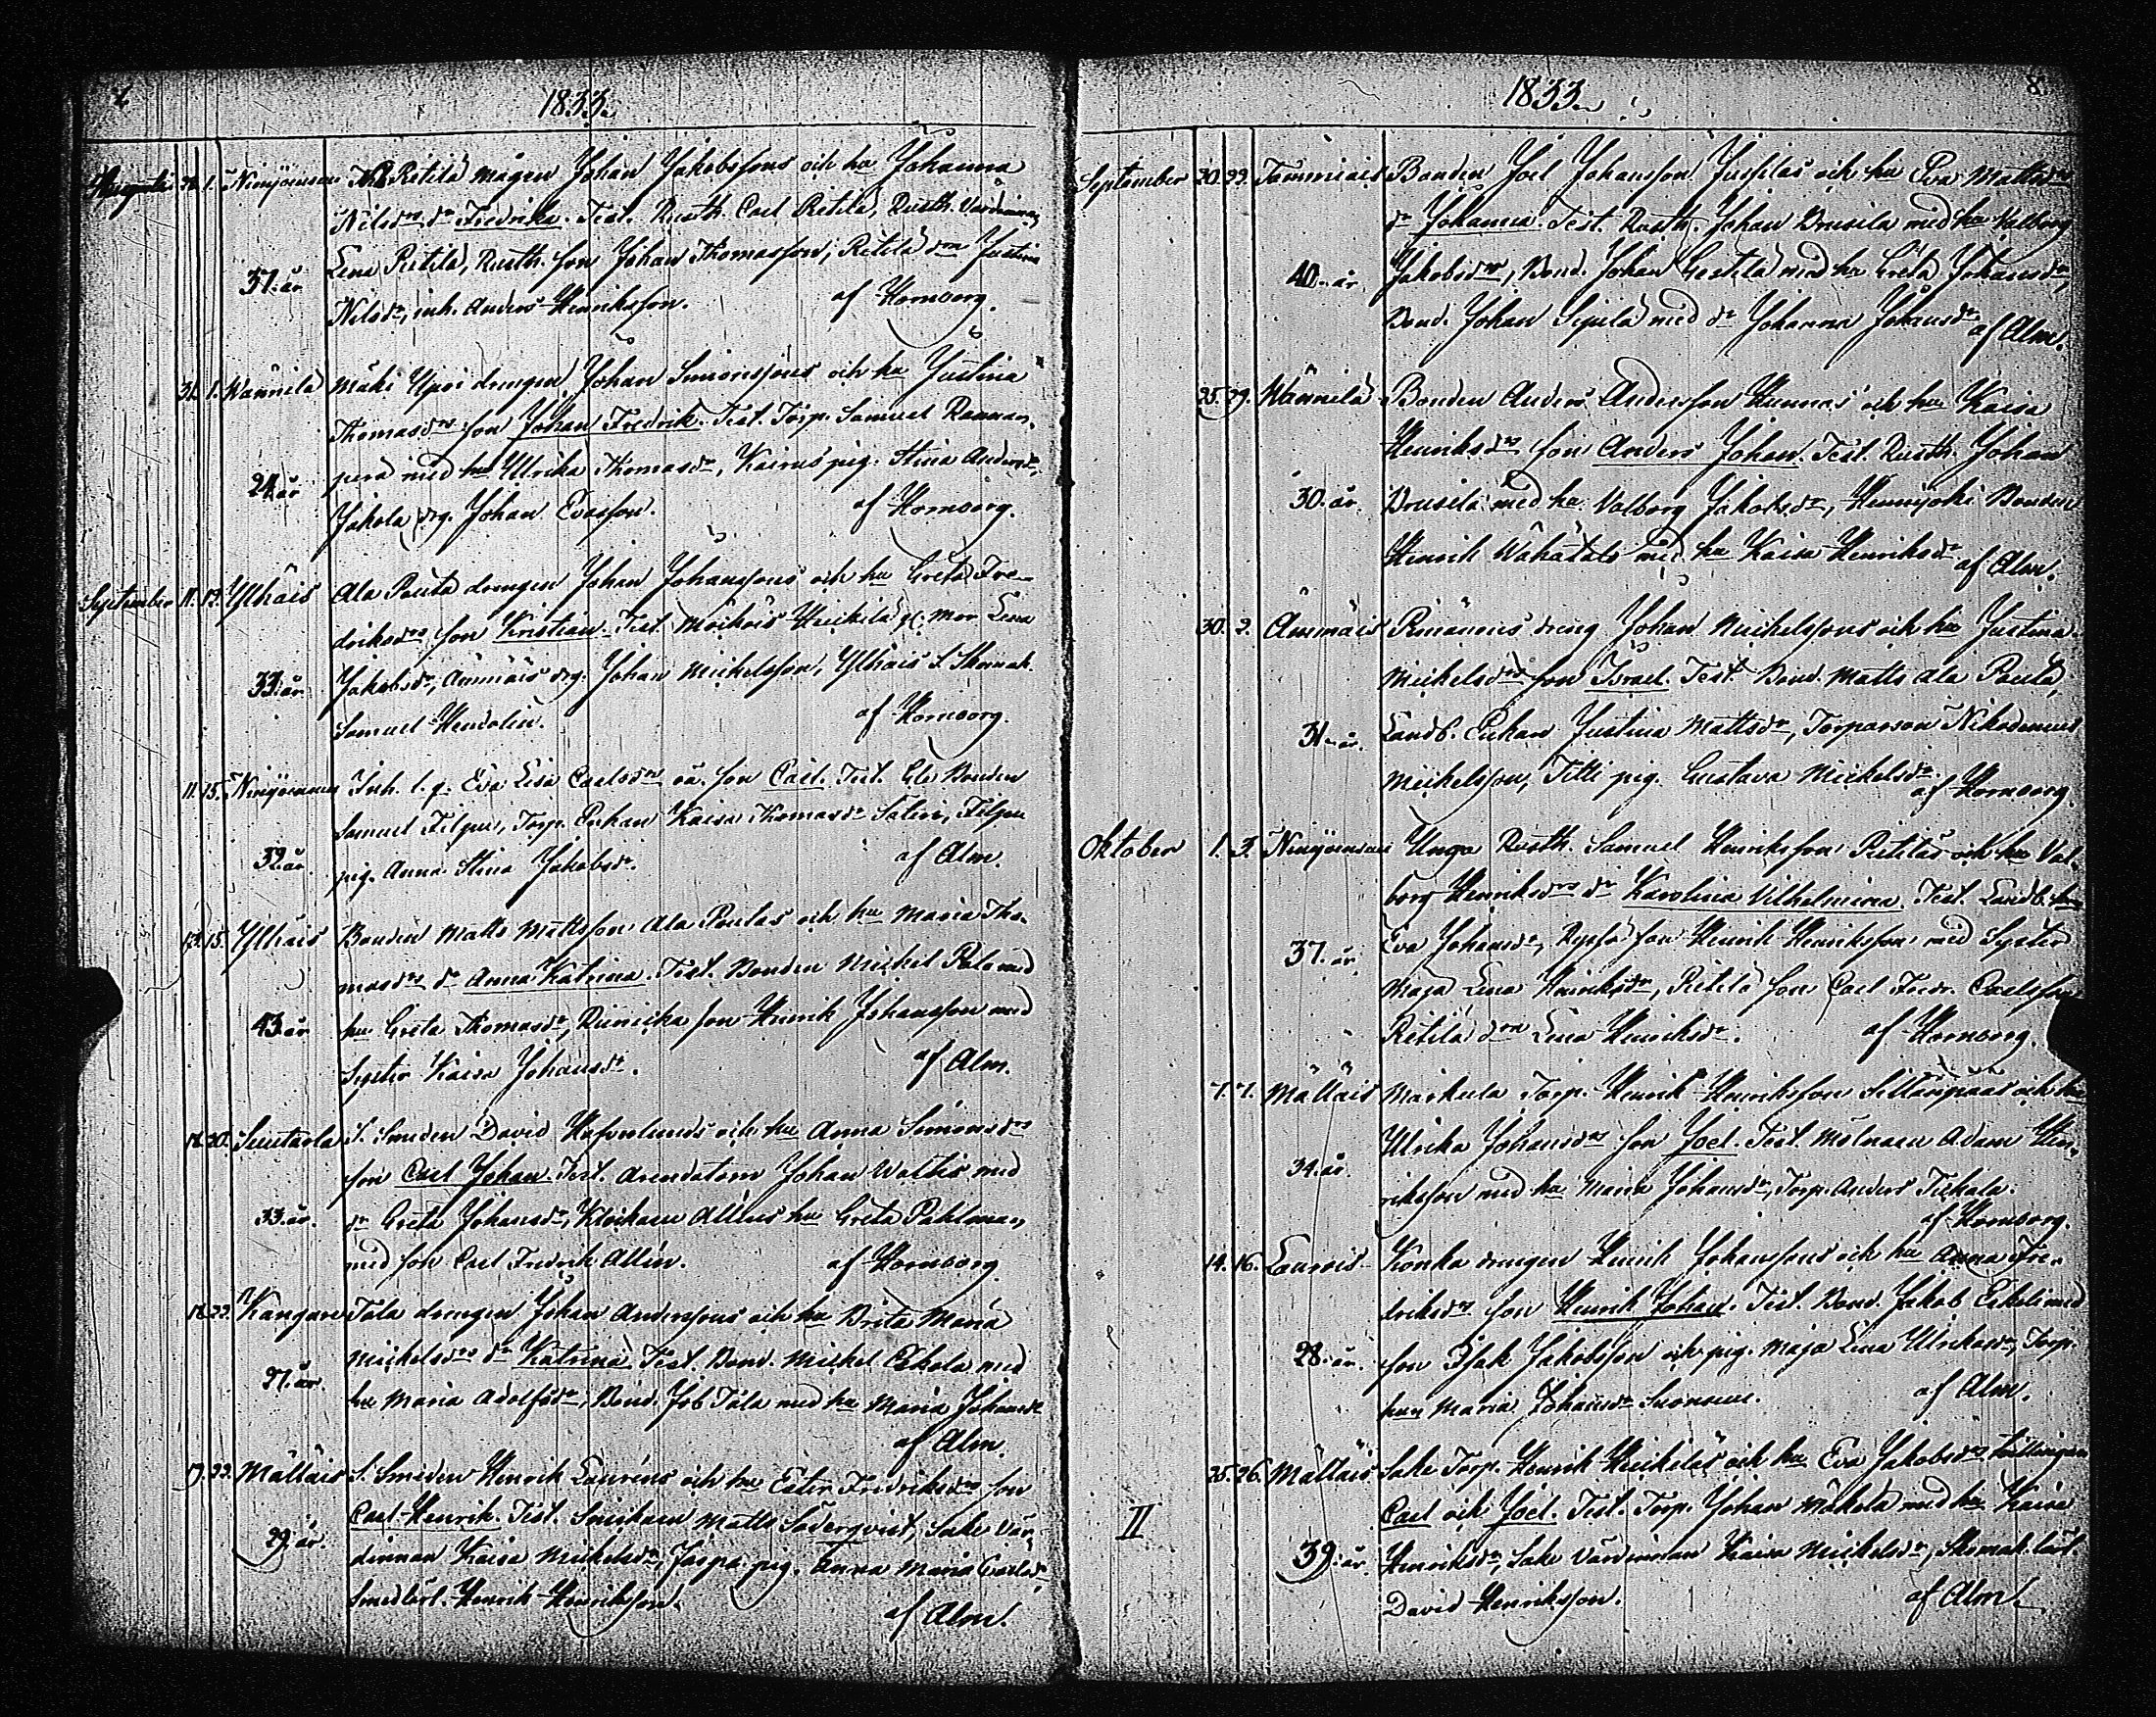 1833.
Augusti 1. Ninijoensuu Retilä mågen Johan Jakobssons och hu Johanna
Nilsdrs dr Fredrika. Test. Rusth. Carl Retilä, Rusth. Värdinnan
Lena Retilä, Rusth. son Johan Thomasson, Retilä drn Justina
37. år
Nilsdr, inh. Anders Henriksson. af Hornborg.
31. 1. Wännilä Mäki Upri drengen Johan Simonssons och hu Justina
Thomasdrs son Johan Fredrik. Test. Torp. Samuel Rannan
perä med hu Ulrika Thomasdr, pig. Stina Andersdr,
24. år
Jakola drg. Johan Evasson. af Hornborg.
September 11. Yllhäis Ala Pauta drengen Johan Johanssons och hu Greta Fre-
driksdrs son Kristian. Test. Heikilä gl. mor Lena
33. år Jakobsdr, Ämmäis drg. Johan Mickelsson, Yllhäis S. Skomak.
Samuel Hendolin. af Hornborg.
11. 15. Ninijoensuu Inh. l. q. Eva Lisa Carlsdrs oä. son Carl. Test. Bonden
Samuel Filpu, Torp. Enkan Kaisa Thomasdr Salin, Filpu
32. år
pig. Anna Stina Jakobsdr. af Alm.
15. Yllhäis Bonden Matts Mattsson Ala Pautas och hu Maria Tho-
masdrs dr Anna Katrina. Test. Bonden Mickel Palo med
43. år hu Greta Thomasdr, son Henrik Johansson med
Syster Kaisa Johansdr. af Alm.
20. Suntaola S. Smeden David Hafverlunds och hu Anna Simonsdrs
son Carl Johan. Test. Arendatorn Johan Wallis med
33. år. dr Greta Johansdr, Klockaren Alléns hu Greta Pahlman,
med son Carl Fredrik Allén. af Hornborg
22. Kangare Tala drengen Johan Anderssons och hu Brita Maria
Mickelsdrs dr Katrina. Test. Bond. Mickel Eskola med
27. år.
hu Maria Adolfsdr, Bond. Job Tala med hu Maria Johansdr
af Alm.
19. 22. Mälläis S. Smeden Henrik Lauréns och hu Ester Fredriksdrs son
Carl Henrik. Test. Smikaren Matts Söderqvist, Sake Vär-
29. år.
dinnan Kaisa Mickelsdr, Jaspa pig. Anna Maria Carlsdr
Smedlärl. Henrik Henriksson. af Alm.
1833. 8.
September 20. 22. Tammiais Bonden Joel Johansson Jussilas och hu Eva Mattsdrs
dr Johanna. Test. Rusth. Johan Brusila med hu Valborg
40. år. Jakobsdr, Bond. Johan med hu Greta Johansdr,
Bond. Johan Sipilä med dr Johanna Johansdr. af Alm.
25. 29. Wännilä Bonden Anders Andersson Hunnas och hu Kaisa
Henriksdrs son Anders Johan. Test. Rusth. Johan
30. år. Brusila med hu Valborg Jakobsdr, Hennijoki Bonden
Henrik Wähätalo med hu Kaisa Henriksdr. af Alm.
30. 2. Ämmäis dreng Johan Mickelssons och hu Justina
Mickelsdrs son Israel. Test. Bond. Matts Ala Pauta,
31. år. Landb. Enkan Justina Mattsdr, Torparson Nikodemus
Mickelsson, Titti pig. Gustava Mickelsdr. af Hornborg
Oktober 1. 3. Ninijoensuu Unga Rusth. Samuel Henriksson Retiläs och hu Val-
borg Henriksdrs dr Karolina Vilhelmina. Test. Landb. hu
37. år. Eva Johansdr, son Henrik Henriksson med Syster
Maja Lena Henriksdr, Retilä son Carl Fredr. Carlsson
Retilä drn Lena Henriksdr. af Hornborg.
7. 7. Mälläis Markula Torp. Henrik Henriksson Sillanpääs och hu
Ulrika Johansdrs son Joel. Test. Mölnaren Adam Hen-
34. år.
riksson med hu Maria Johansdr, Torp. Anders Tuhkala.
af Hornborg.
14. 16. Laurois Konka drengen Henrik Johanssons och hu Anna Fre-
driksdrs son Henrik Johan. Test. Bond. Jakob Erkeli med
28. år. son Isak Jakobsson och pig. Maja Lena Ulriksdr, Torp.
hun Maria Johansdr Suonsuu. af Alm.
25. 26. Mälläis Sake Torp. Henrik Heikiläs och hu Eva Jakobsdrs tvillingar
II Carl och Joel. Test. Torp. Johan Mäkelä med hu Kaisa
39. år. Henriksdr, Sake Värdinnan Kaisa Mickelsdr, Skomak. lärl.
David Henriksson. af Alm.